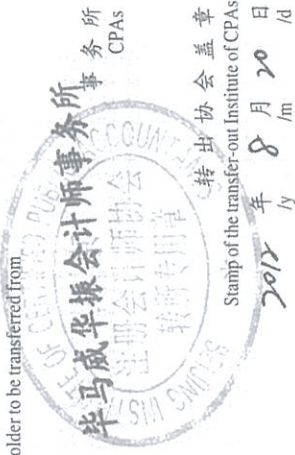 older to be transferred from
毕马威华振会计师事务所
事务所
CPAs
注册会计师协会
转所专用章
转出协会盖章
Stamp of the transfer-out Institute of CPAs
2012年 8月 20日
/y /m /d